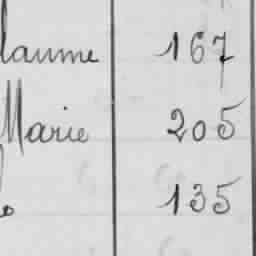 laume 167
Marie 205
135